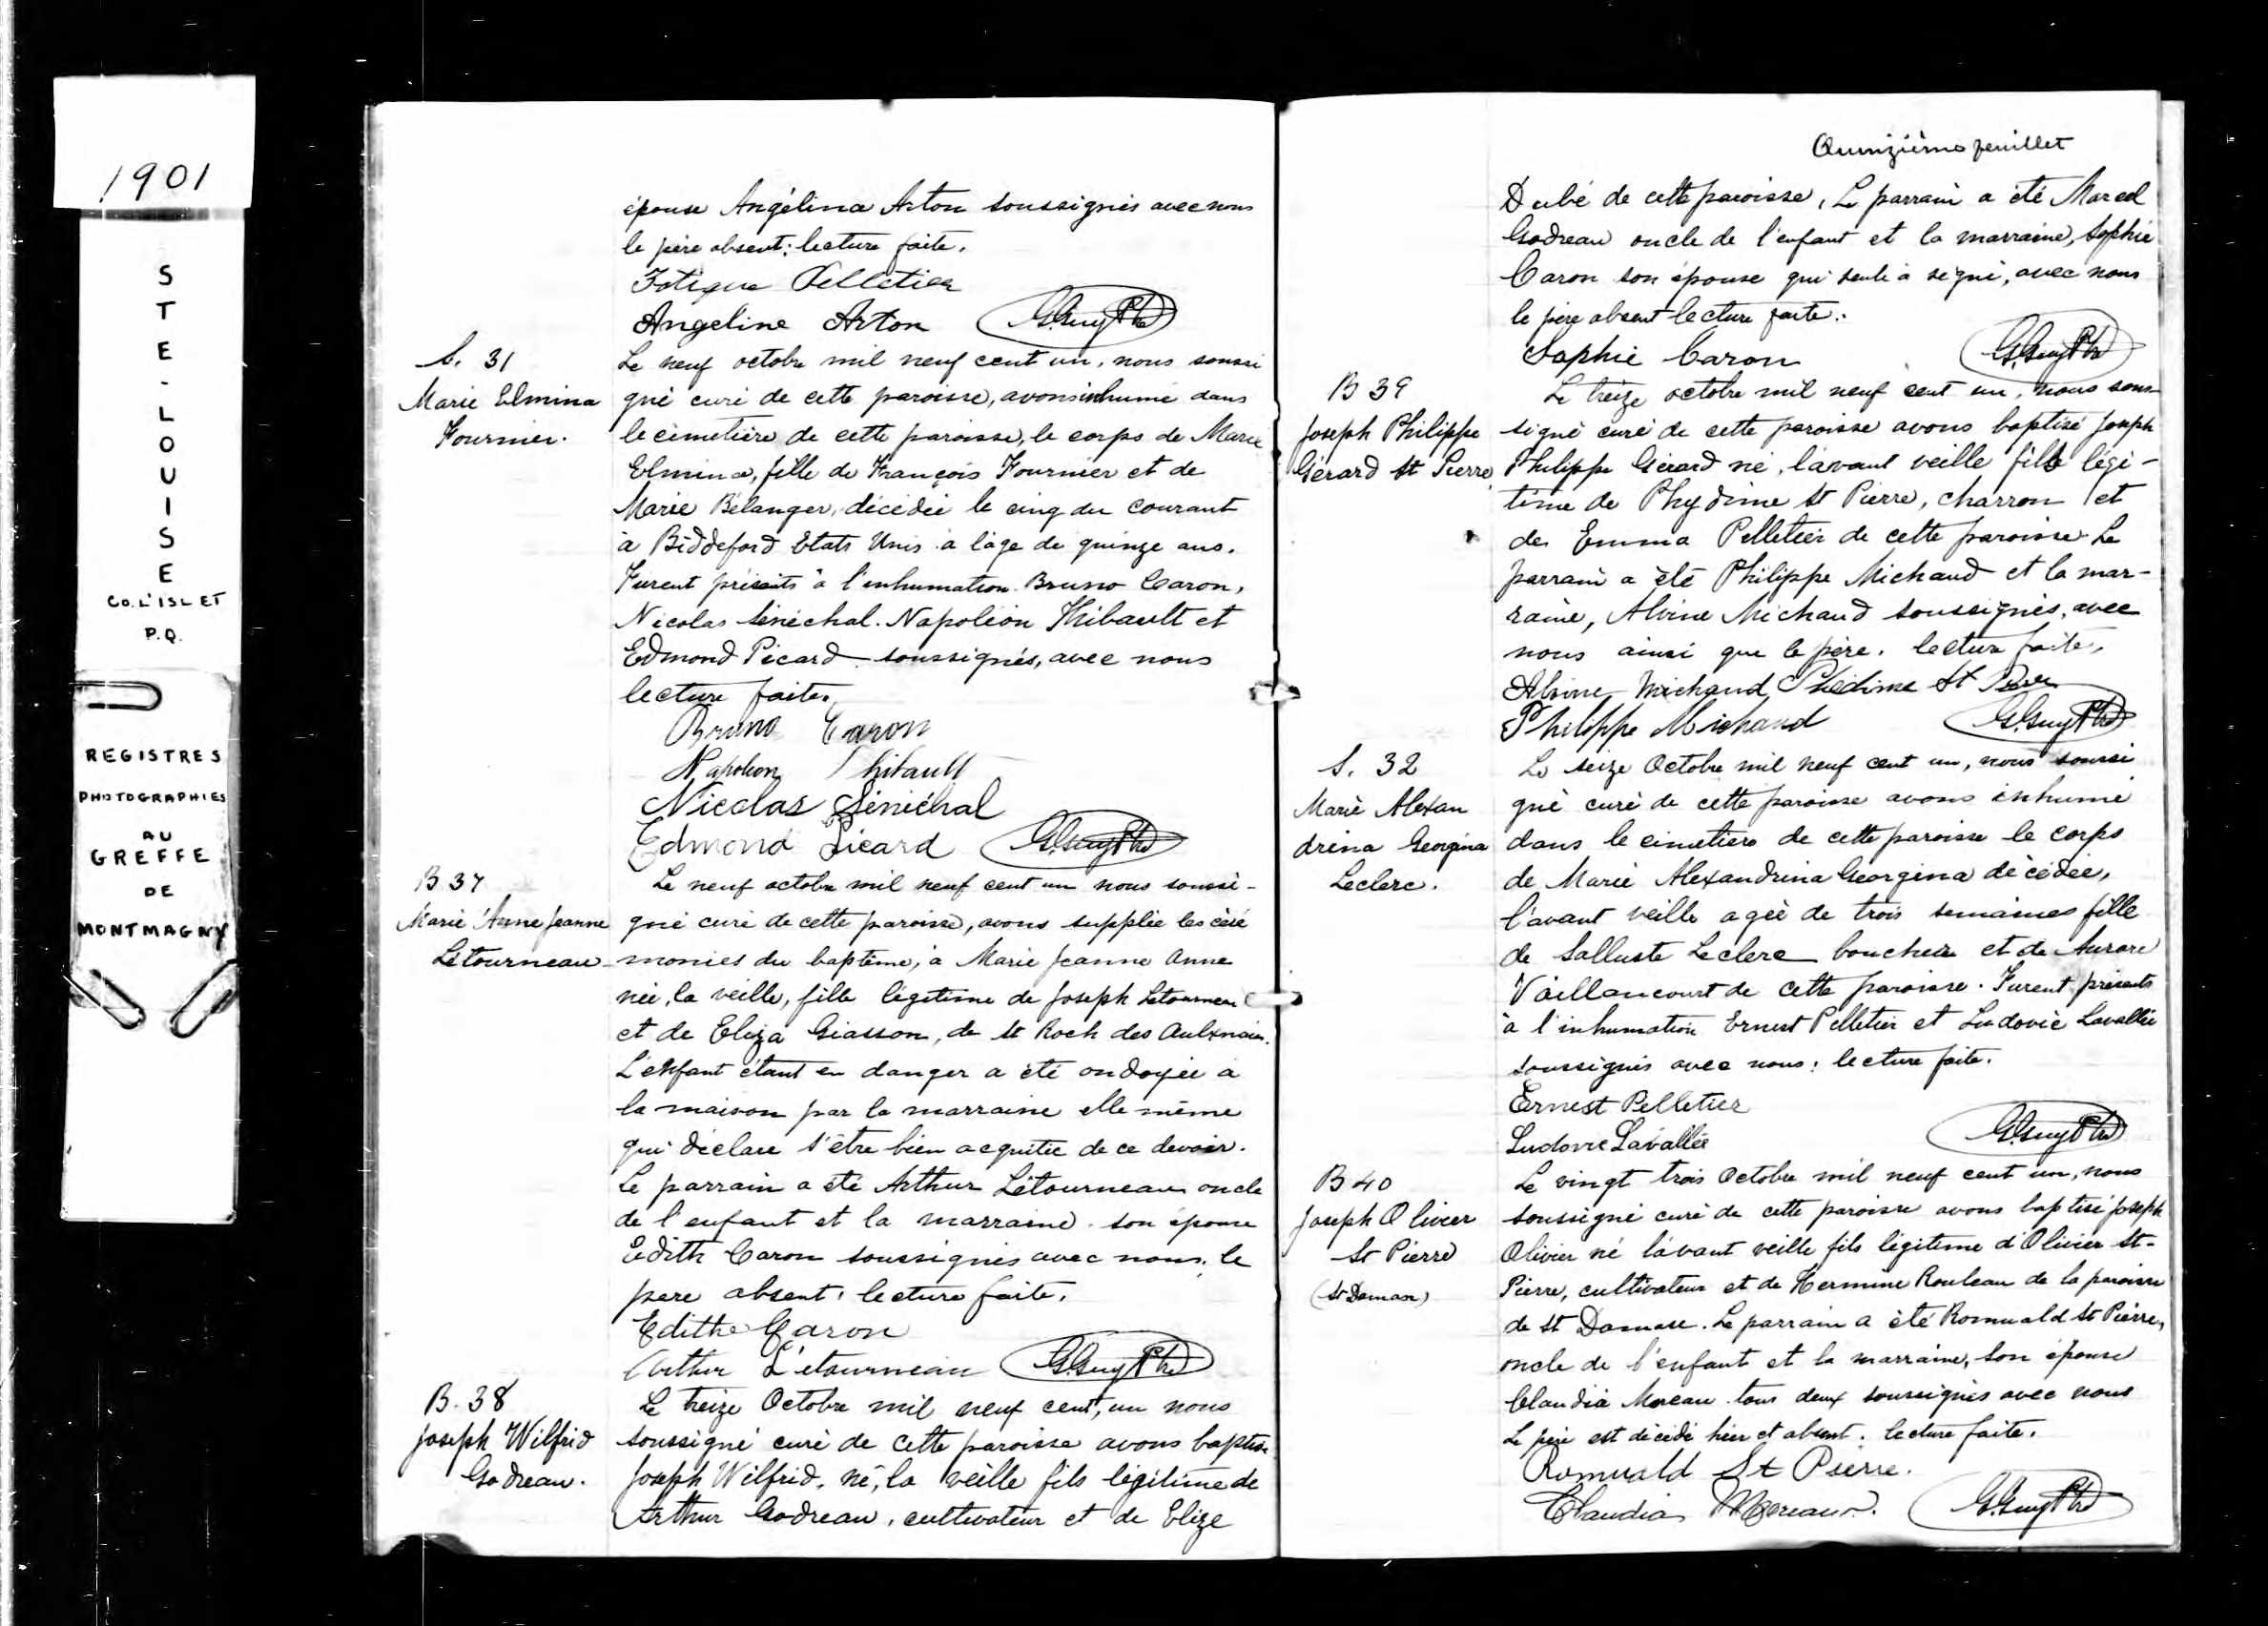 1901
STE-LOUISE
CO. L'ISLET
P.Q.
REGISTRES
PHOTOGRAPHIES
AU
GREFFE
DE
MONTMAGNY
épouse Angélina Arton soussignés avec nous
le père absent; lecture faite.
Pelletier
Angeline Arton G. Guy Ptre
S. 31
Marie Elmina
Fournier.
Le neuf octobre mil neuf cent un, nous soussi
gné curé de cette paroisse, avons inhumé dans
le cimetière de cette paroisse, le corps de Marie
Elmina, fille de François Fournier et de
Marie Bélanger, décédée le cinq du courant
à Biddeford Etats Unis à l'âge de quinze ans.
Furent présents à l'inhumation Bruno Caron,
Nicolas Sénéchal. Napoléon Thibault et
Edmond Picard soussignés, avec nous
lecture faite.
Bruno Caron
Napoleon Thibault
Nicolas Sénéchal
Edmond Picard G. Guy Ptre
B 37
Marie Anne Jeanne
Létourneau
Le neuf octobre mil neuf cent un nous soussi-
gné curé de cette paroisse, avons supplée les céré
monies du baptême, à Marie Jeanne Anne
née, la veille, fille légitime de Joseph Letourneau
et de Eliza Giasson, de St Roch des Aulnaies.
L'enfant étant en danger a été ondoyée à
la maison par la marraine elle même
qui déclare s'être bien acquitée de ce devoir.
Le parrain a été Arthur Létourneau oncle
de l'enfant et la marraine son épouse
Edith Caron soussignés avec nous, le
pere absent, lecture faite.
Edithe Caron
Arthur Létourneau G. Guy Ptre
B. 38
Joseph Wilfrid
Godreau.
Le treize Octobre mil neuf cent, un nous
soussigné curé de cette paroisse avons baptisé
Joseph Wilfrid, né, la veille fils légitime de
Arthur Godreau, cultivateur et de Elize
Quinzième feuillet
Dubé de cette paroisse, Le parrain a été Marcel
Godreau oncle de l'enfant et la marraine, Sophie
Caron son épouse qui seule a signé, avec nous
le père absent lecture faite.
Sophie Caron G. Guy Ptre
B 39
Joseph Philippe
Gérard St Pierre
Le treize octobre mil neuf cent un, nous sous
signé curé de cette paroisse avons baptisé Joseph
Philippe Gérard né, l'avant veille fils légi-
time de Phydime St Pierre, charron et
de Emma Pelletier de cette paroisse Le
parrain a été Philippe Michaud et la mar-
raine, Alvine Michaud soussignés, avec
nous ainsi que le père. lecture faite,
Alvine Michaud Phédime St Pierre
Philippe Michaud G. Guy Ptre
S. 32
Marie Alexan
drina Georgina
Leclerc.
Le seize Octobre mil neuf cent un, nous soussi
gné curé de cette paroisse avons inhumé
dans le cimetière de cette paroisse le corps
de Marie Alexandrina Georgina décédée,
l'avant veille agée de trois semaines fille
de Salluste Leclerc boucher et de Aurore
Vaillancourt de cette paroisse. Furent présents
à l'inhumation Ernest Pelletier et Ludovic Lavallée
soussignés avec nous: lecture faite.
Ernest Pelletier
Ludovic Lavallée G. Guy Ptre
B 40
Joseph Olivier
St Pierre
(St Damase)
Le vingt trois Octobre mil neuf cent un, nous
soussigné curé de cette paroisse avons baptisé Joseph
Olivier né l'avant veille fils légitime d'Olivier St-
Pierre, cultivateur et de Hermine Rouleau de la paroisse
de St Damase. Le parrain a été Romuald St Pierre,
oncle de l'enfant et la marraine, son épouse
Claudia Moreau tous deux soussignés avec nous
Le père est décédé hier et absent. lecture faite.
Romuald St Pierre.
Claudia Moreau. G. Guy Ptre